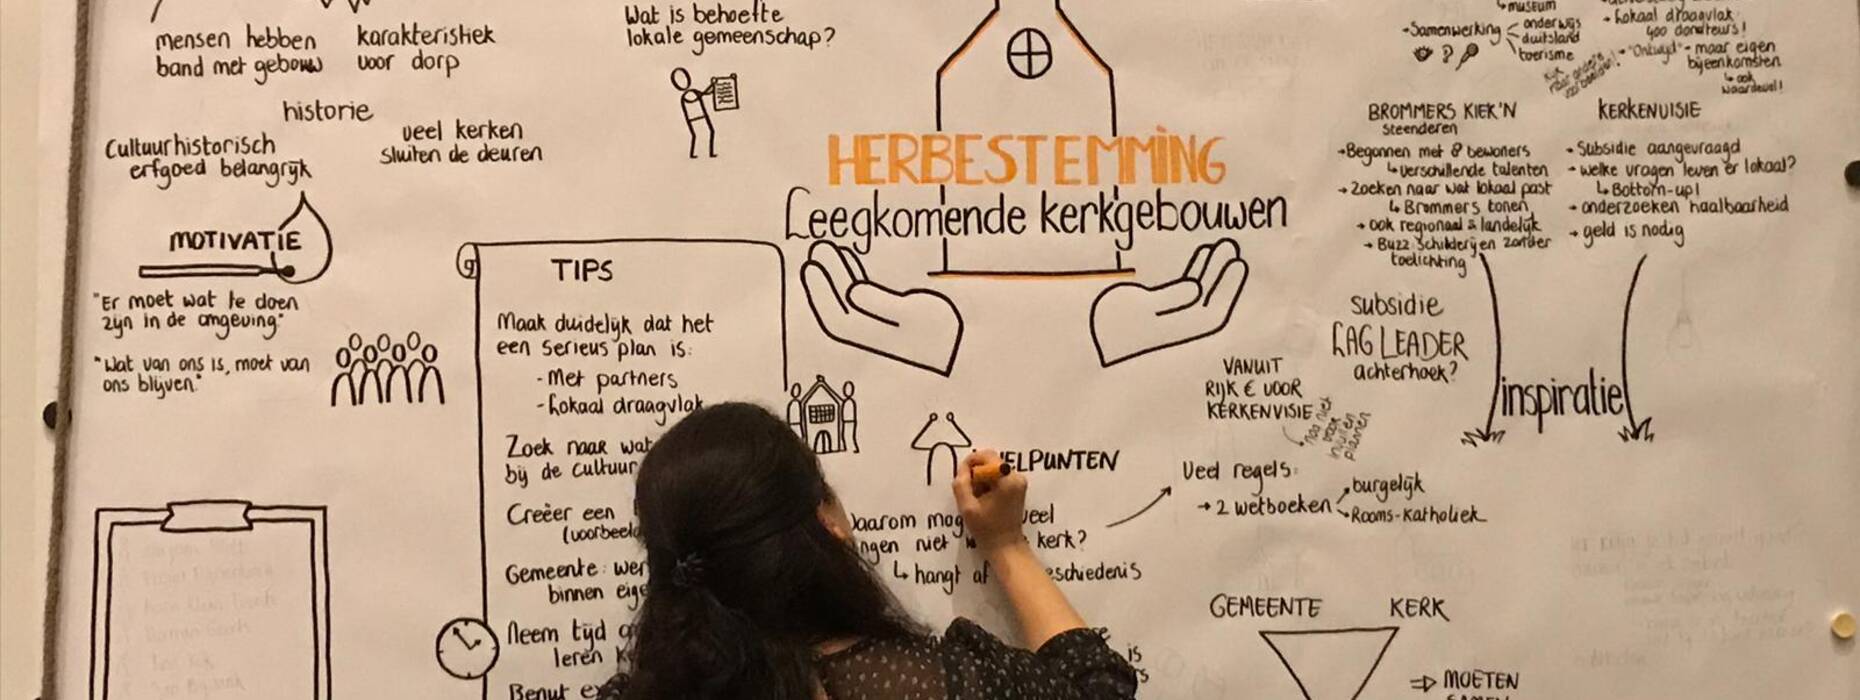 mensen hebben
band met gebouw
karakteristiek
voor dorp
historie
Cultuurhistorisch
erfgoed belangrijk
veel kerken
sluiten de deuren
MOTIVATIE
"Er moet wat te doen
zijn in de omgeving"
"Wat van ons is, moet van
ons blijven."
Wat is behoefte
lokale gemeenschap?
HERBESTEMMING
Leegkomende kerkgebouwen
TIPS
Maak duidelijk dat het
een serieus plan is:
- Met partners
- Lokaal draagvlak
Zoek naar wat
bij de cultuur
Creëer een
(voorbeeld
Gemeente: wer
binnen eige
Neem tijd
leren k
Benut ex
ELPUNTEN
Waarom mog veel
ngen niet kerk?
↳ hangt af eschiedenis
is
Veel regels:
→ 2 wetboeken
burgelijk
Rooms-Katholiek
VANUIT
RIJK € VOOR
KERKENVISIE
subsidie
LAG LEADER
achterhoek?
GEMEENTE KERK
⇒ MOETEN
SAMEN
museum
- Samenwerking
onderwijs
duitsland
toerisme
→ Lokaal draagvlak
400 donateurs!
→ "Ontwijd" - maar eigen
bijeenkomsten
↳ ook
waardevol!
BROMMERS KIEK'N
Steenderen
→ Begonnen met 8 bewoners
↳ verschillende talenten
→ Zoeken naar wat lokaal past
↳ Brommers tonen
→ ook regionaal & landelijk
→ Buzz Schilderijen zonder
toelichting
KERKENVISIE
→ Subsidie aangevraagd
→ welke vragen leven er lokaal?
↳ Bottom-up!
→ onderzoeken haalbaarheid
→ geld is nodig
inspiratie